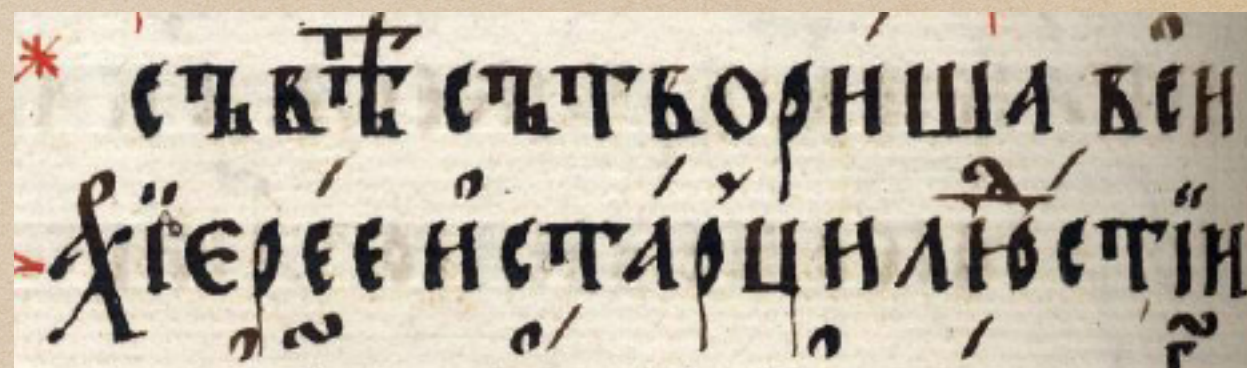 съвѣⷮ сътвори́ша вси
а҆рхїере́е и҆ ста́рци лю́ⷣстїи